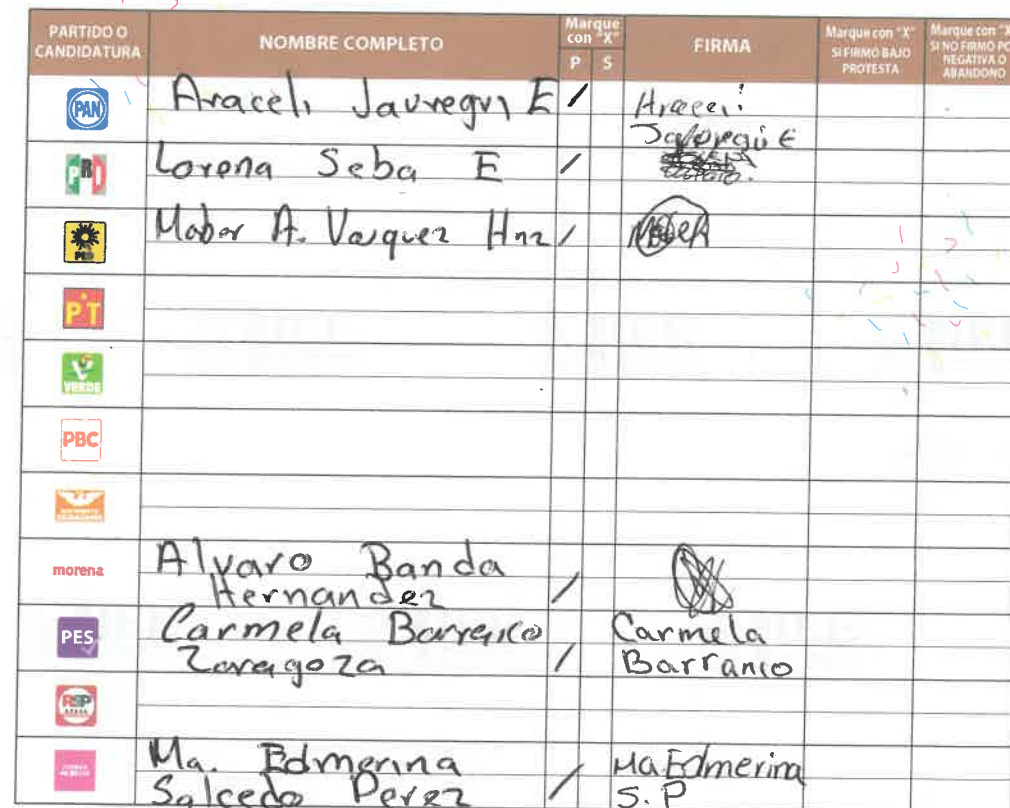 PARTIDO O CANDIDATURA NOMBRE COMPLETO Marque con "X" P S FIRMA Marque con "X" SI FIRMO BAJO PROTESTA Marque con "X" SI NO FIRMO POR NEGATIVA O ABANDONO
PAN Araceli Jauregui E / Araceli
Jauregui E
PRI Lorena Seba E /
PRD A. Vazquez Hnz /
PT
VERDE
PBC
morena Alvaro Banda
Hernandez /
PES Carmela Barranco Carmela
Zaragoza / Barranco
RSP
Ma. Edmerina Ma Edmerina
Salcedo Perez / S. P